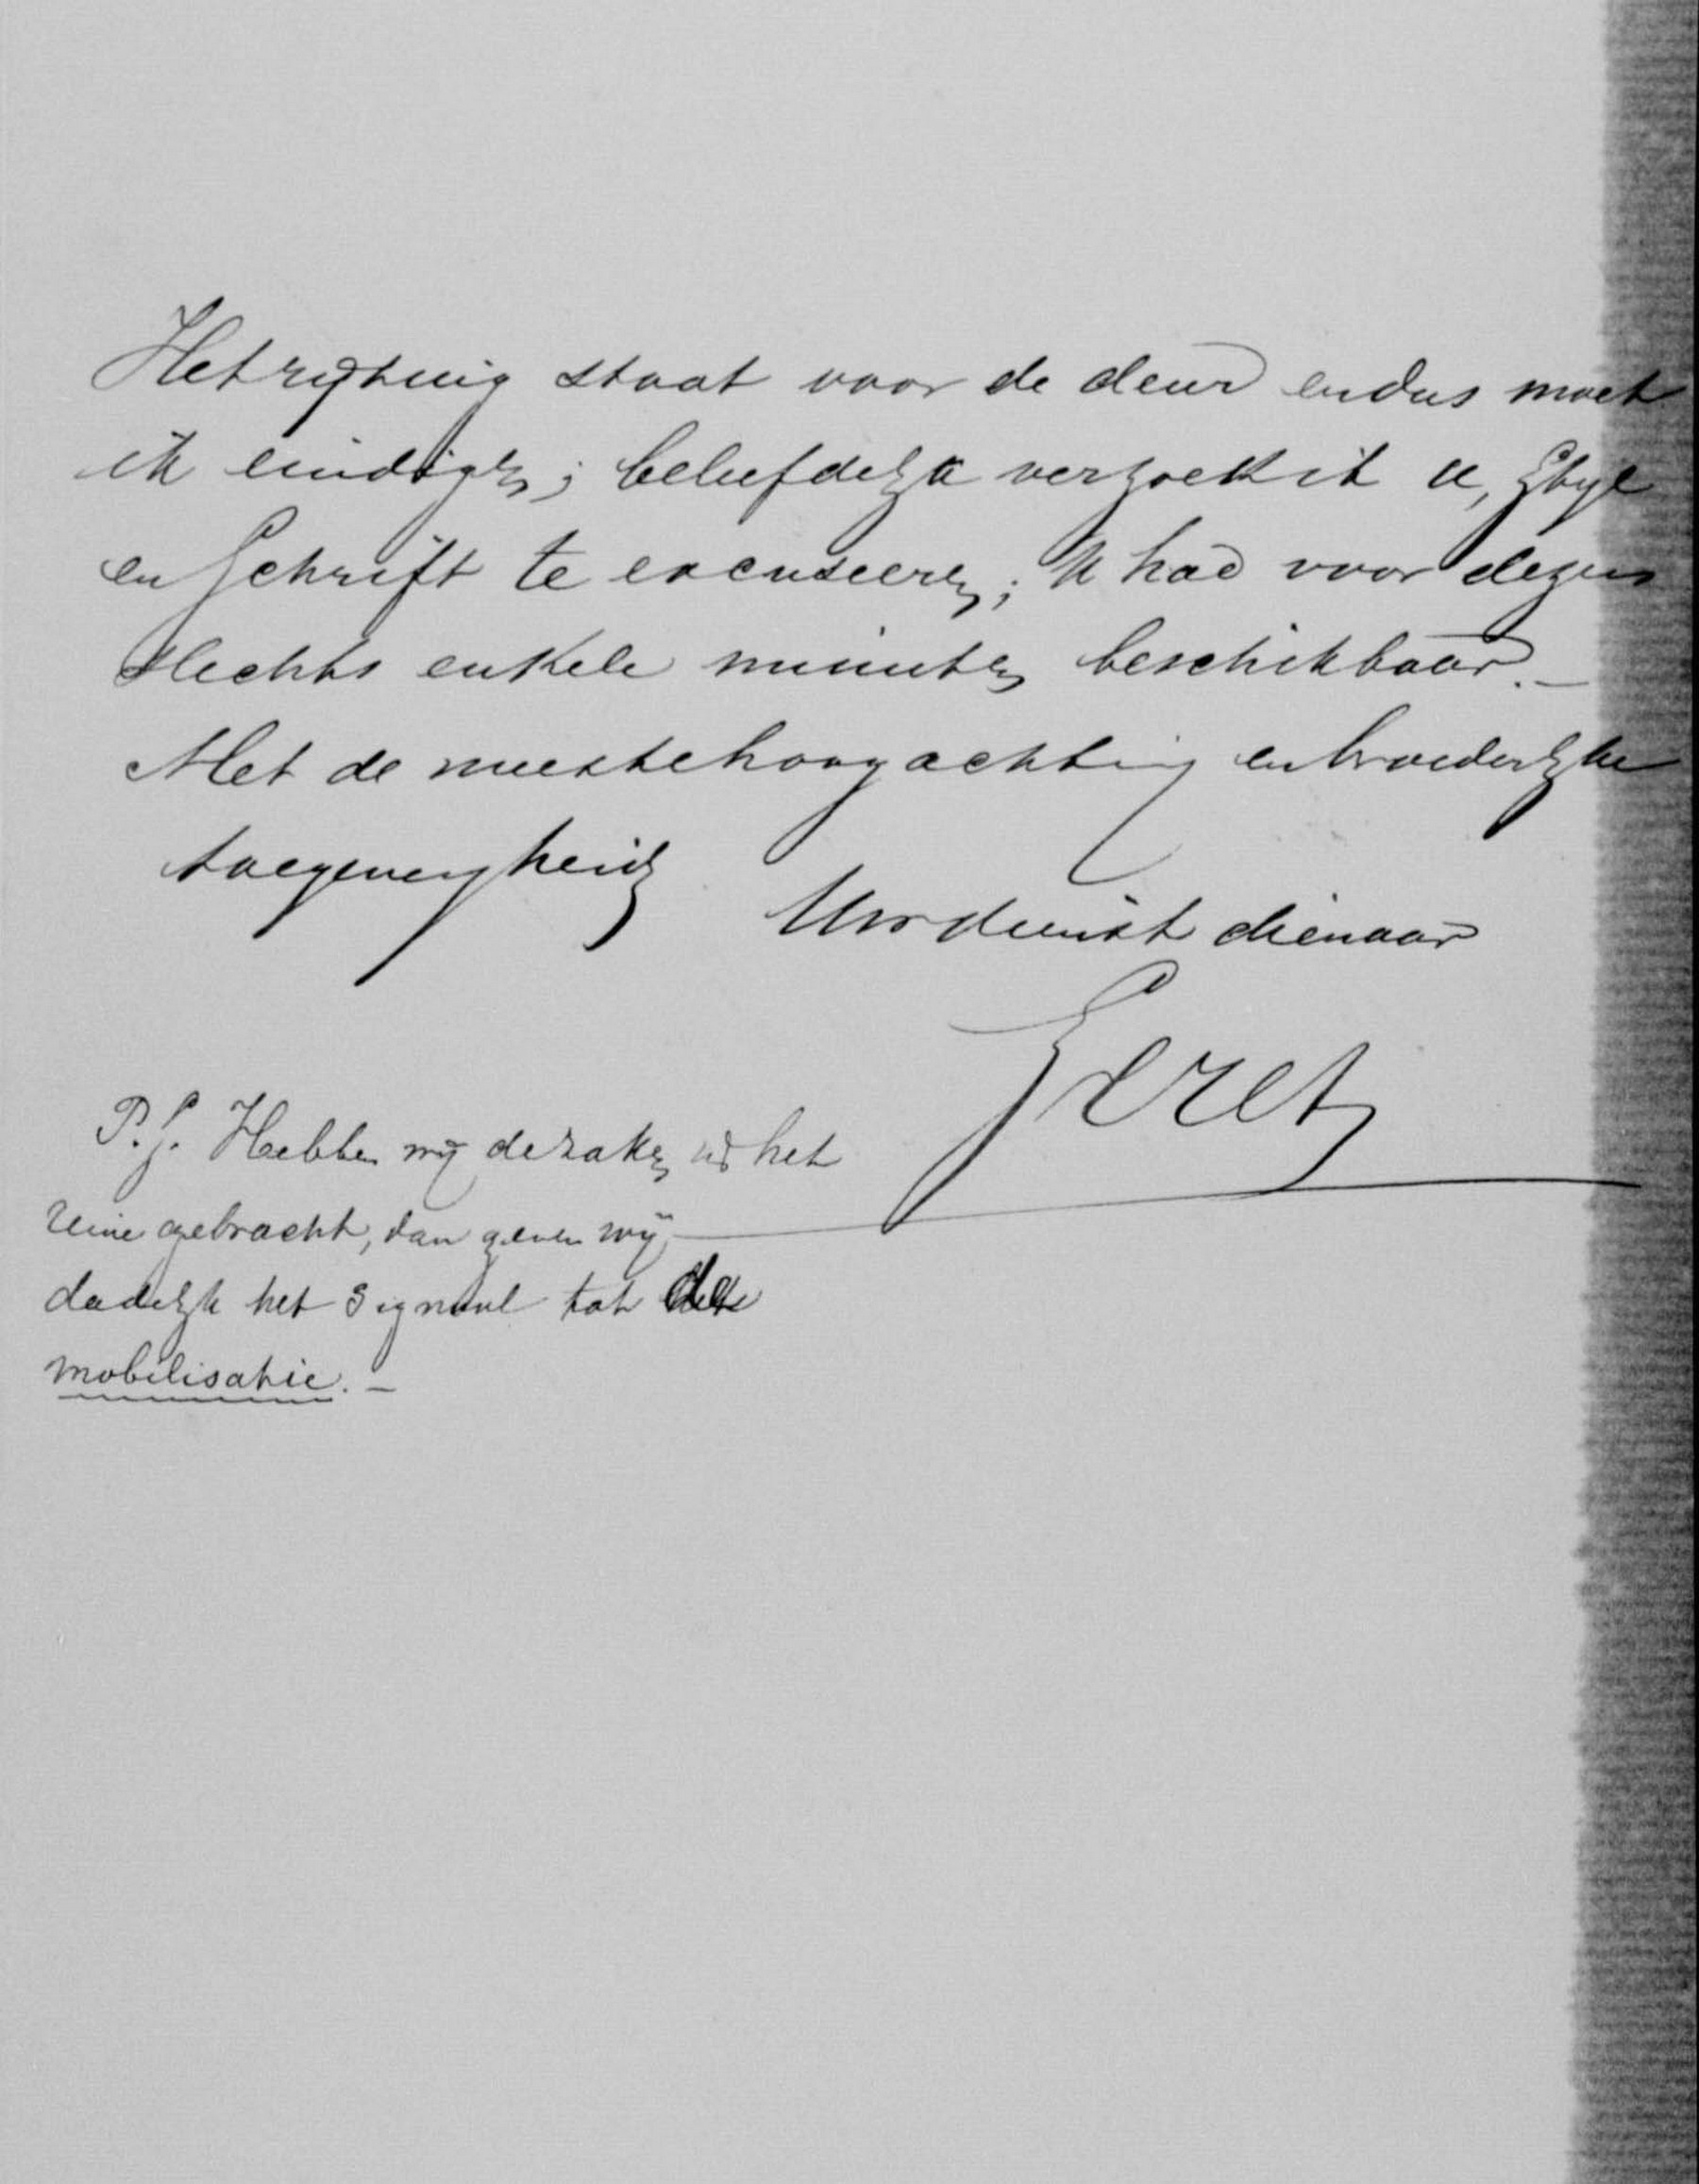 Het rijtuig staat voor de deur en dus moet
ik eindigen; beleefdelijk verzoek ik U, Stijl
en Schrift te excuseeren; Ik had voor dezen
slechts enkele minuten beschikbaar. –
Met de meeste hoogachting en broederlijke
toegenegenheid
Uw dienst dienaar
Seret
P.S. Hebben wij de zaken in het
reine gebracht, dan geven wij
dadelijk het Signaal tot de
mobilisatie. –